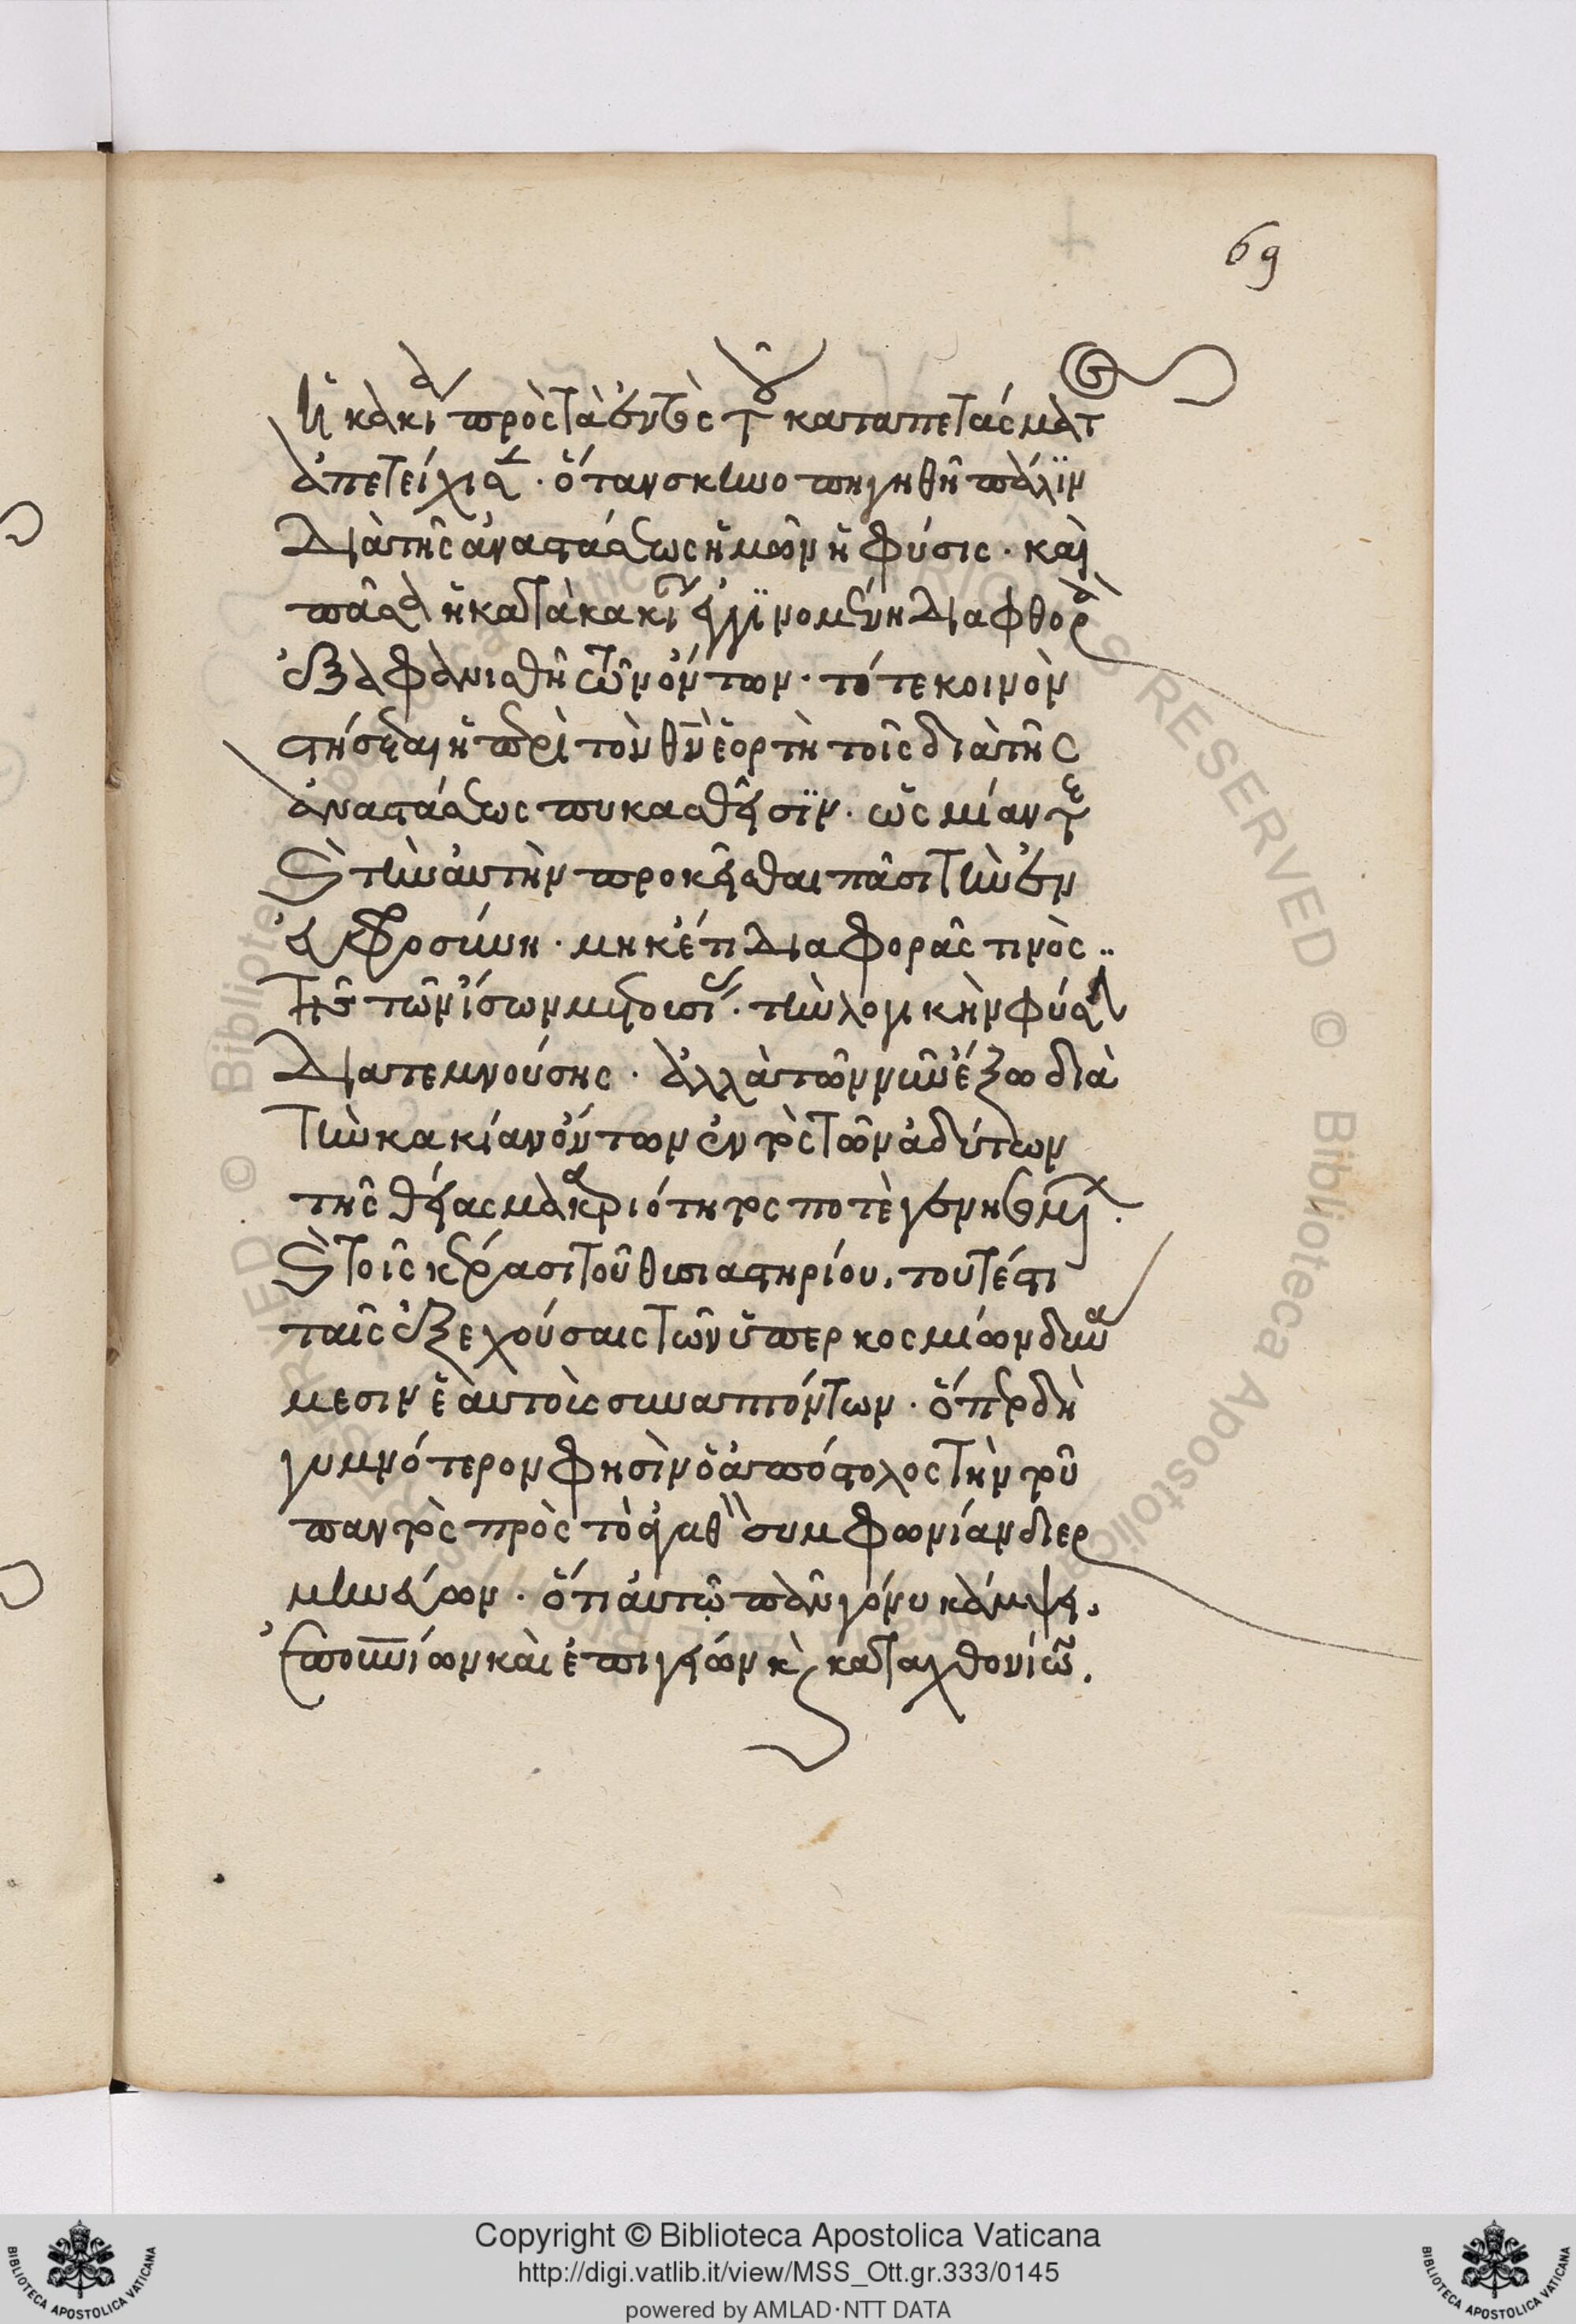 69
ἡ κακία πρὸς τὰ ἐντὸς τοῦ καταπετάσματος
ἀπετείχισεν. ὅταν σκηνοπηγηθῇ πάλιν
διὰ τῆς ἀναστάσεως ἡμῶν ἡ φύσις. καὶ
πᾶσα ἡ κατὰ κακίαν ἐγγινομένη διαφθορὰ
ἐξαφανισθῇ τῶν ὄντων. τότε κοινὸν
στήσεται ἡ περὶ τὸν θν ἑορτὴ τοῖς διὰ τῆς
ἀναστάσεως πυκασθεῖσιν. ὡς μίαν τε
καὶ τὴν αὐτὴν προκεῖσθαι πᾶσι τὴν ἐν
εὐφροσύνην. μηκέτι διαφορᾶς τινὸς
τῆς τῶν ἴσων μετουσίας. τὴν λογικὴν φύσιν
διατεμνούσης. ἀλλὰ τῶν νῦν ἔξω διὰ
τὴν κακίαν ὄντων ἐντὸς τῶν ἀδύτων
τῆς θείας μακαριότητος ποτὲ γενησομένων.
καὶ τοῖς κέρασι τοῦ θυσιαστηρίου, τουτέστι
ταῖς ἐξεχούσαις τῶν ὑπερκοσμίων δυνά
μεσιν ἑαυτοὺς συναπτόντων. ὅπερ δὴ
γυμνότερον φησὶν ὁ ἀπόστολος τὴν τοῦ
παντὸς πρὸς τὸ ἀγαθὸν συμφωνίαν διερ
μηνεύων. ὅτι αὐτῷ πᾶν γόνυ κάμψει,
ἐπουνίων καὶ ἐπιγείων καὶ καταχθονίων.
Copyright © Biblioteca Apostolica Vaticana
http://digi.vatlib.it/view/MSS_Ott.gr.333/0145
powered by AMLAD·NTT DATA